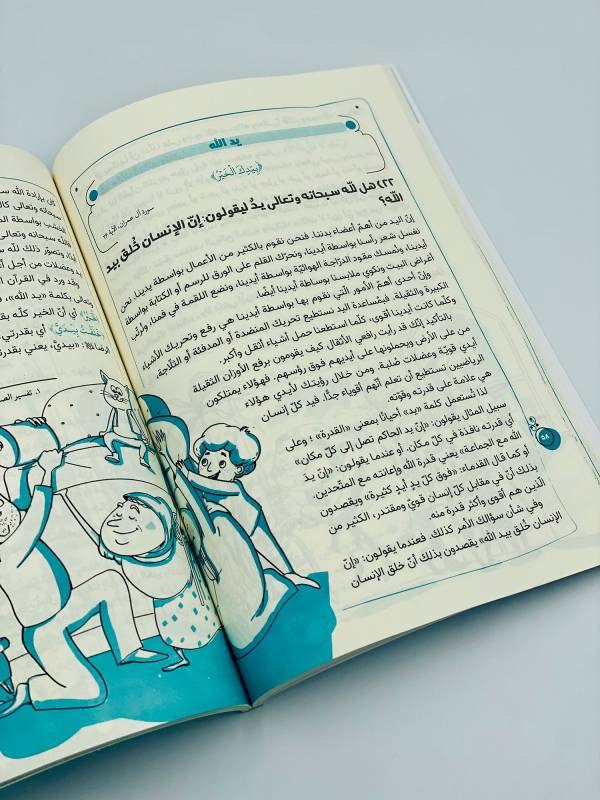 يد الله
﴿بِيَدِكَ الْخَيْرُ﴾
سورة آل عمران، الآية ٢٦
٢٢٣ هل لله سبحانه وتعالى يدٌ ليقولون: إنّ الإنسان خُلق بيد
الله؟
إنّ اليد من أهمّ أعضاء بدننا. فنحن نقوم بالكثير من الأعمال بواسطة يدينا. نحن
نغسل شعر رأسنا بواسطة أيدينا، ونحرّك القلم على الورق للرسم أو الكتابة بواسطة
أيدينا، ونُمسك مقود الدرّاجة الهوائيّة بواسطة أيدينا، ونضع اللقمة في فمنا، ونُرتّب
أغراض البيت ونكوي ملابسنا بواسطة أيدينا أيضًا.
وإنّ إحدى أهمّ الأمور التي نقوم بها بواسطة أيدينا هي رفع وتحريك الأشياء
الكبيرة والثقيلة. فبمُساعدة اليد نستطيع تحريك المنضدة أو المدفئة أو الثلّاجة.
وكلّما كانت أيدينا أقوى، كلّما استطعنا حمل أشياء أثقل وأكبر.
بالتأكيد إنّك قد رأيت رافعي الأثقال كيف يقومون برفع الأوزان الثقيلة
من على الأرض ويحملونها على أيديهم فوق رؤوسهم. فهؤلاء يمتلكون
أيدي قويّة وعضلات صُلبة. ومن خلال رؤيتك لأيدي هؤلاء
الرياضيين تستطيع أن تعلم أنّهم أقوياء جدًّا. فيد كلّ إنسان
هي علامة على قدرته وقوّته.
لذا تُستعمل كلمة «يد» أحيانًا بمعنى «القدرة»؛ وعلى
سبيل المثال يقولون: «إنّ يد الحاكم تصل إلى كلّ مكان»
أي قدرته نافذة في كلّ مكان. أو عندما يقولون: «إنّ يدَ
الله مع الجماعة» يعني قدرة الله وإعانته مع المتّحدين.
أو كما قال القدماء: «فوق كلّ يدٍ أيدٍ كثيرة» ويقصدون
بذلك أنّ في مقابل كلّ إنسان قويّ ومقتدر، الكثير من
الّذين هم أقوى وأكثر قدرة منه
وفي شأن سؤالك الأمر كذلك. فعندما يقولون: «إنّ
الإنسان خُلق بيد الله» يقصدون بذلك أنّ خلق الإنسان
٥٨
كان بإرادة الله
سبحانه وتعالى
بواسطة
الله سبحانه وتعالى
لله
وعضلات من أجل
وقد ورد في القرآن
بكلمة «يد الله»،
أي أنّ الخير كلّه
﴿خَلَقْتُ بِيَدَيَّ﴾ أي بقدرتي
«بيديّ»، يعني بقدرة
١. تفسير